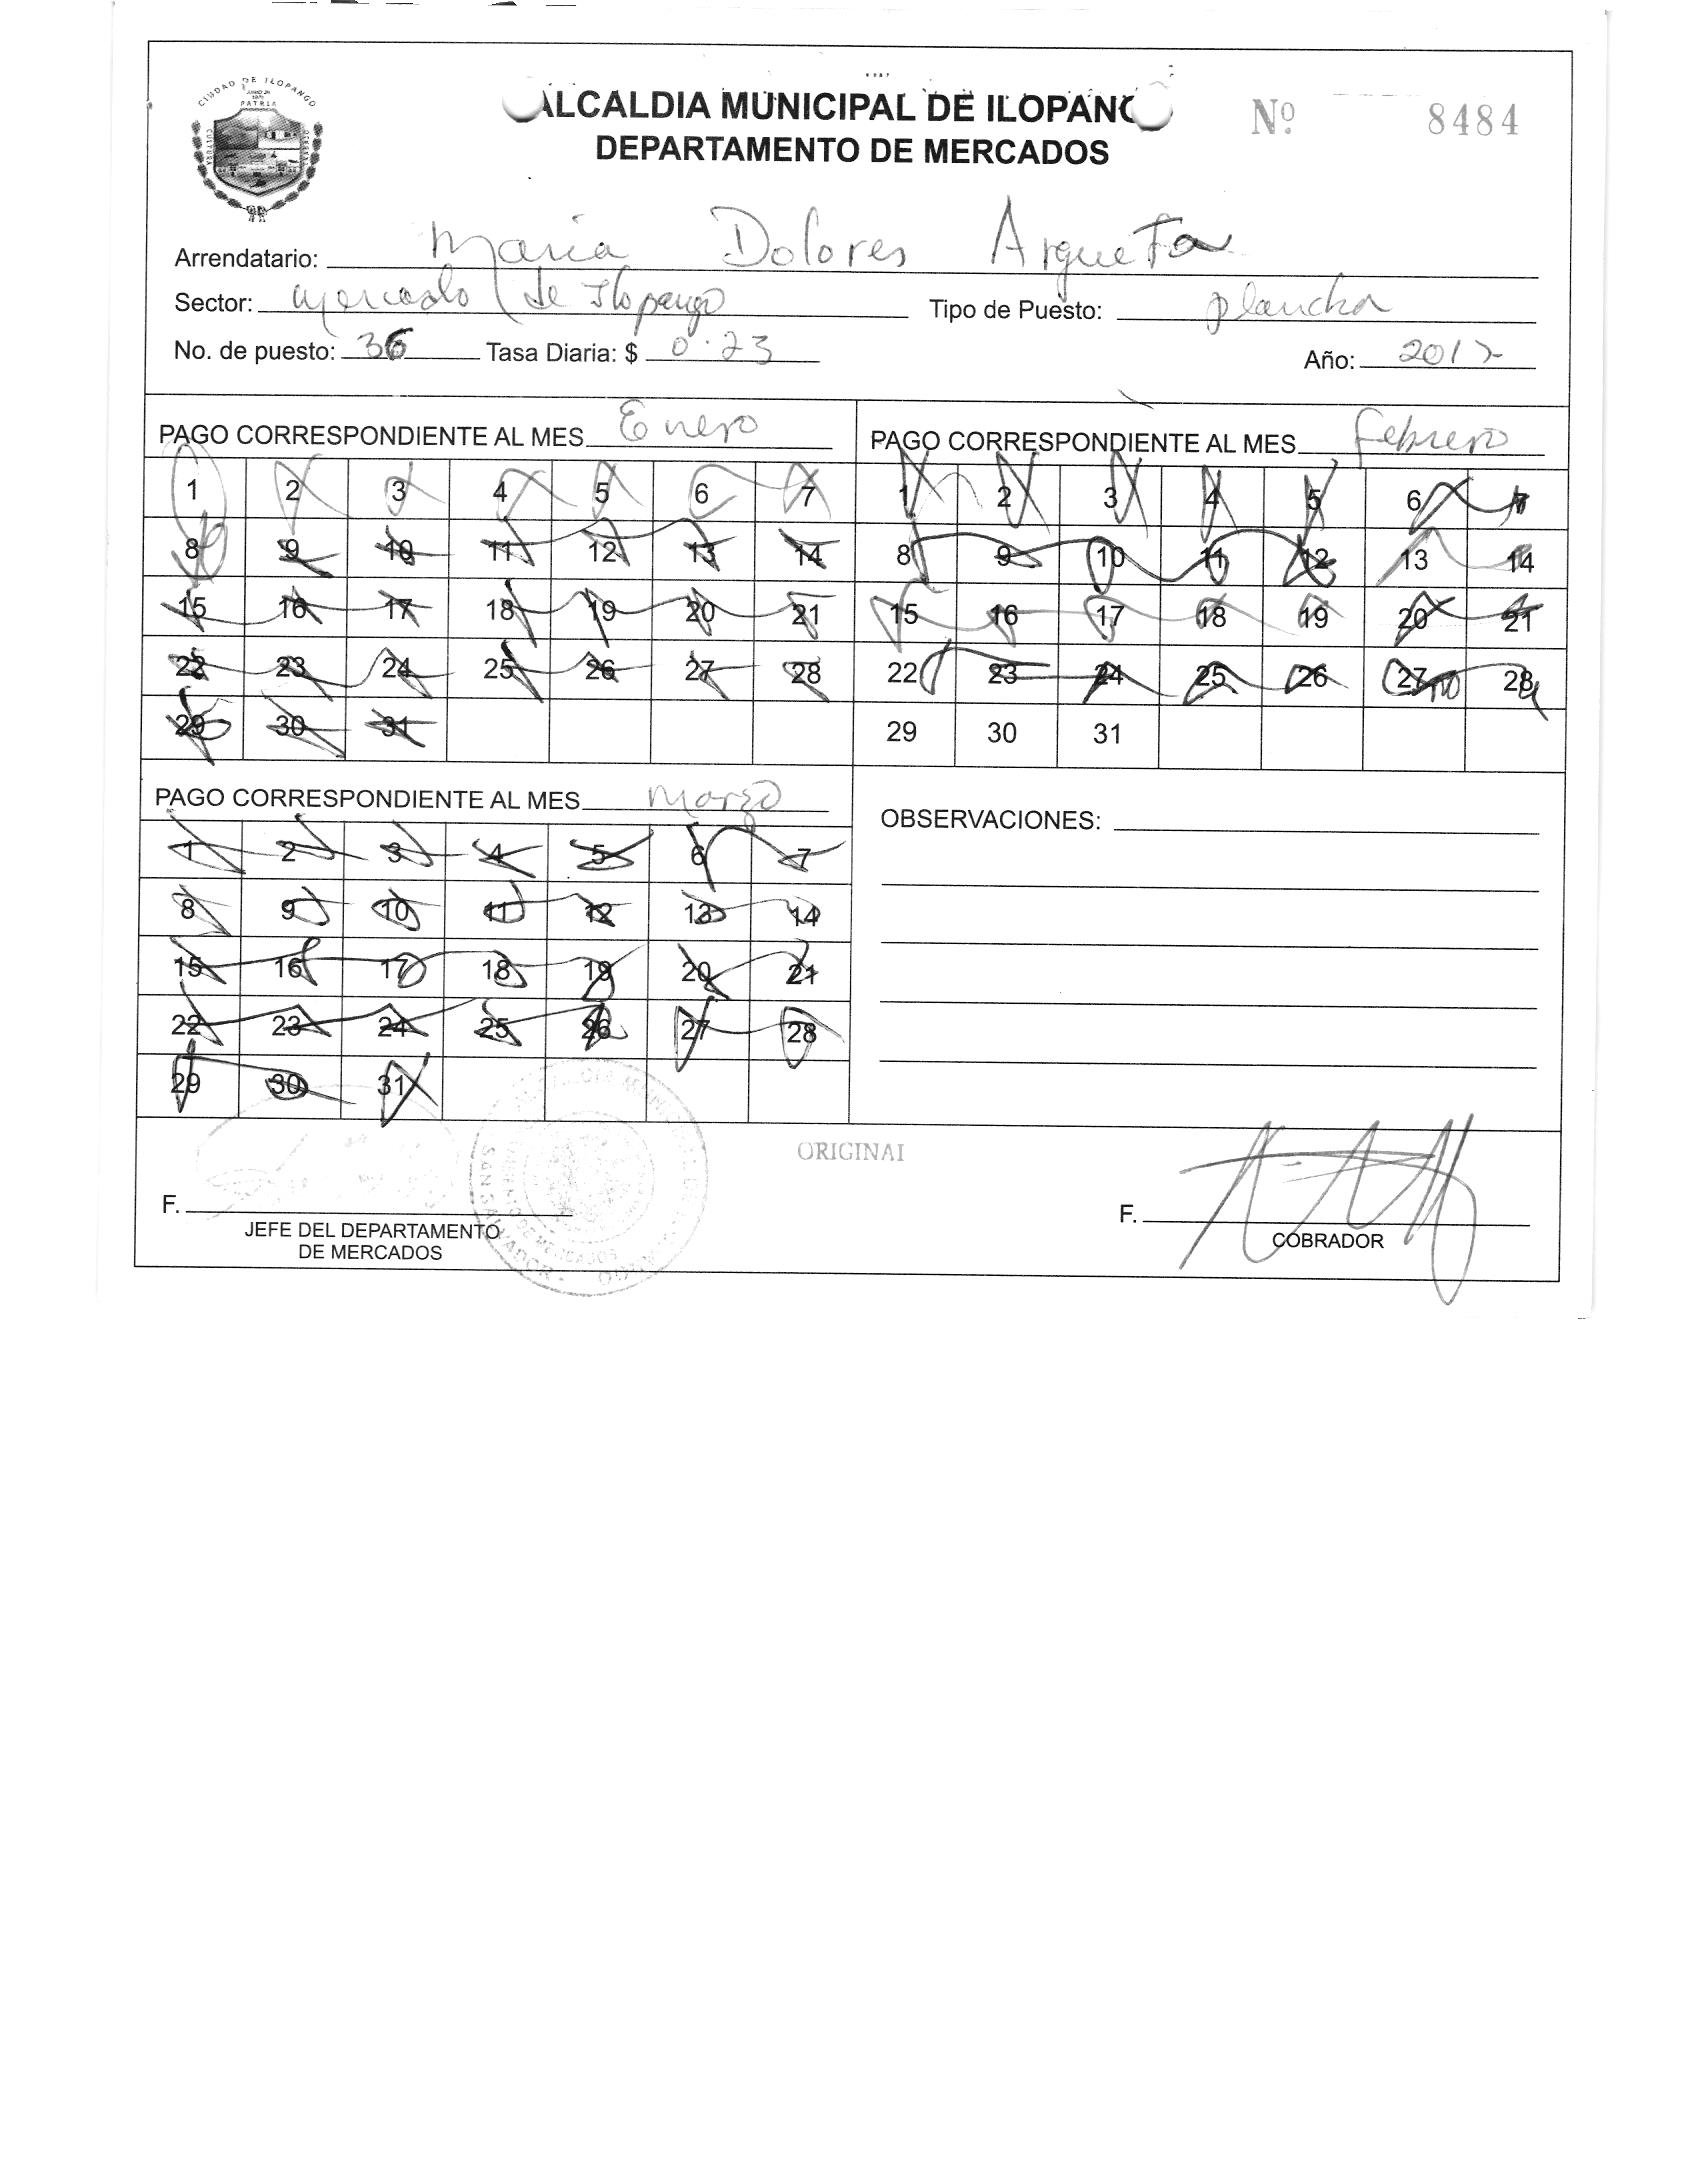 CIUDAD DE ILOPANGO
PATRIA
CULTURA
ALCALDIA MUNICIPAL DE ILOPANG
DEPARTAMENTO DE MERCADOS
Nº 8484
Arrendatario: Maria Dolores Argueta
Sector: Mercado de Ilopango Tipo de Puesto: plancha
No. de puesto: 36 Tasa Diaria: $ 0.23 Año: 2017
PAGO CORRESPONDIENTE AL MES Enero
1 2 3 4 5 6 7
8 9 10 11 12 13 14
15 16 17 18 19 20 21
22 23 24 25 26 27 28
29 30 31
PAGO CORRESPONDIENTE AL MES Febrero
1 2 3 4 5 6 7
8 9 10 11 12 13 14
15 16 17 18 19 20 21
22 23 24 25 26 27 28
29 30 31
PAGO CORRESPONDIENTE AL MES Marzo
1 2 3 4 5 6 7
8 9 10 11 12 13 14
15 16 17 18 19 20 21
22 23 24 25 26 27 28
29 30 31
OBSERVACIONES:
ORIGINAL
F.
JEFE DEL DEPARTAMENTO
DE MERCADOS
SAN SALVADOR
F.
COBRADOR